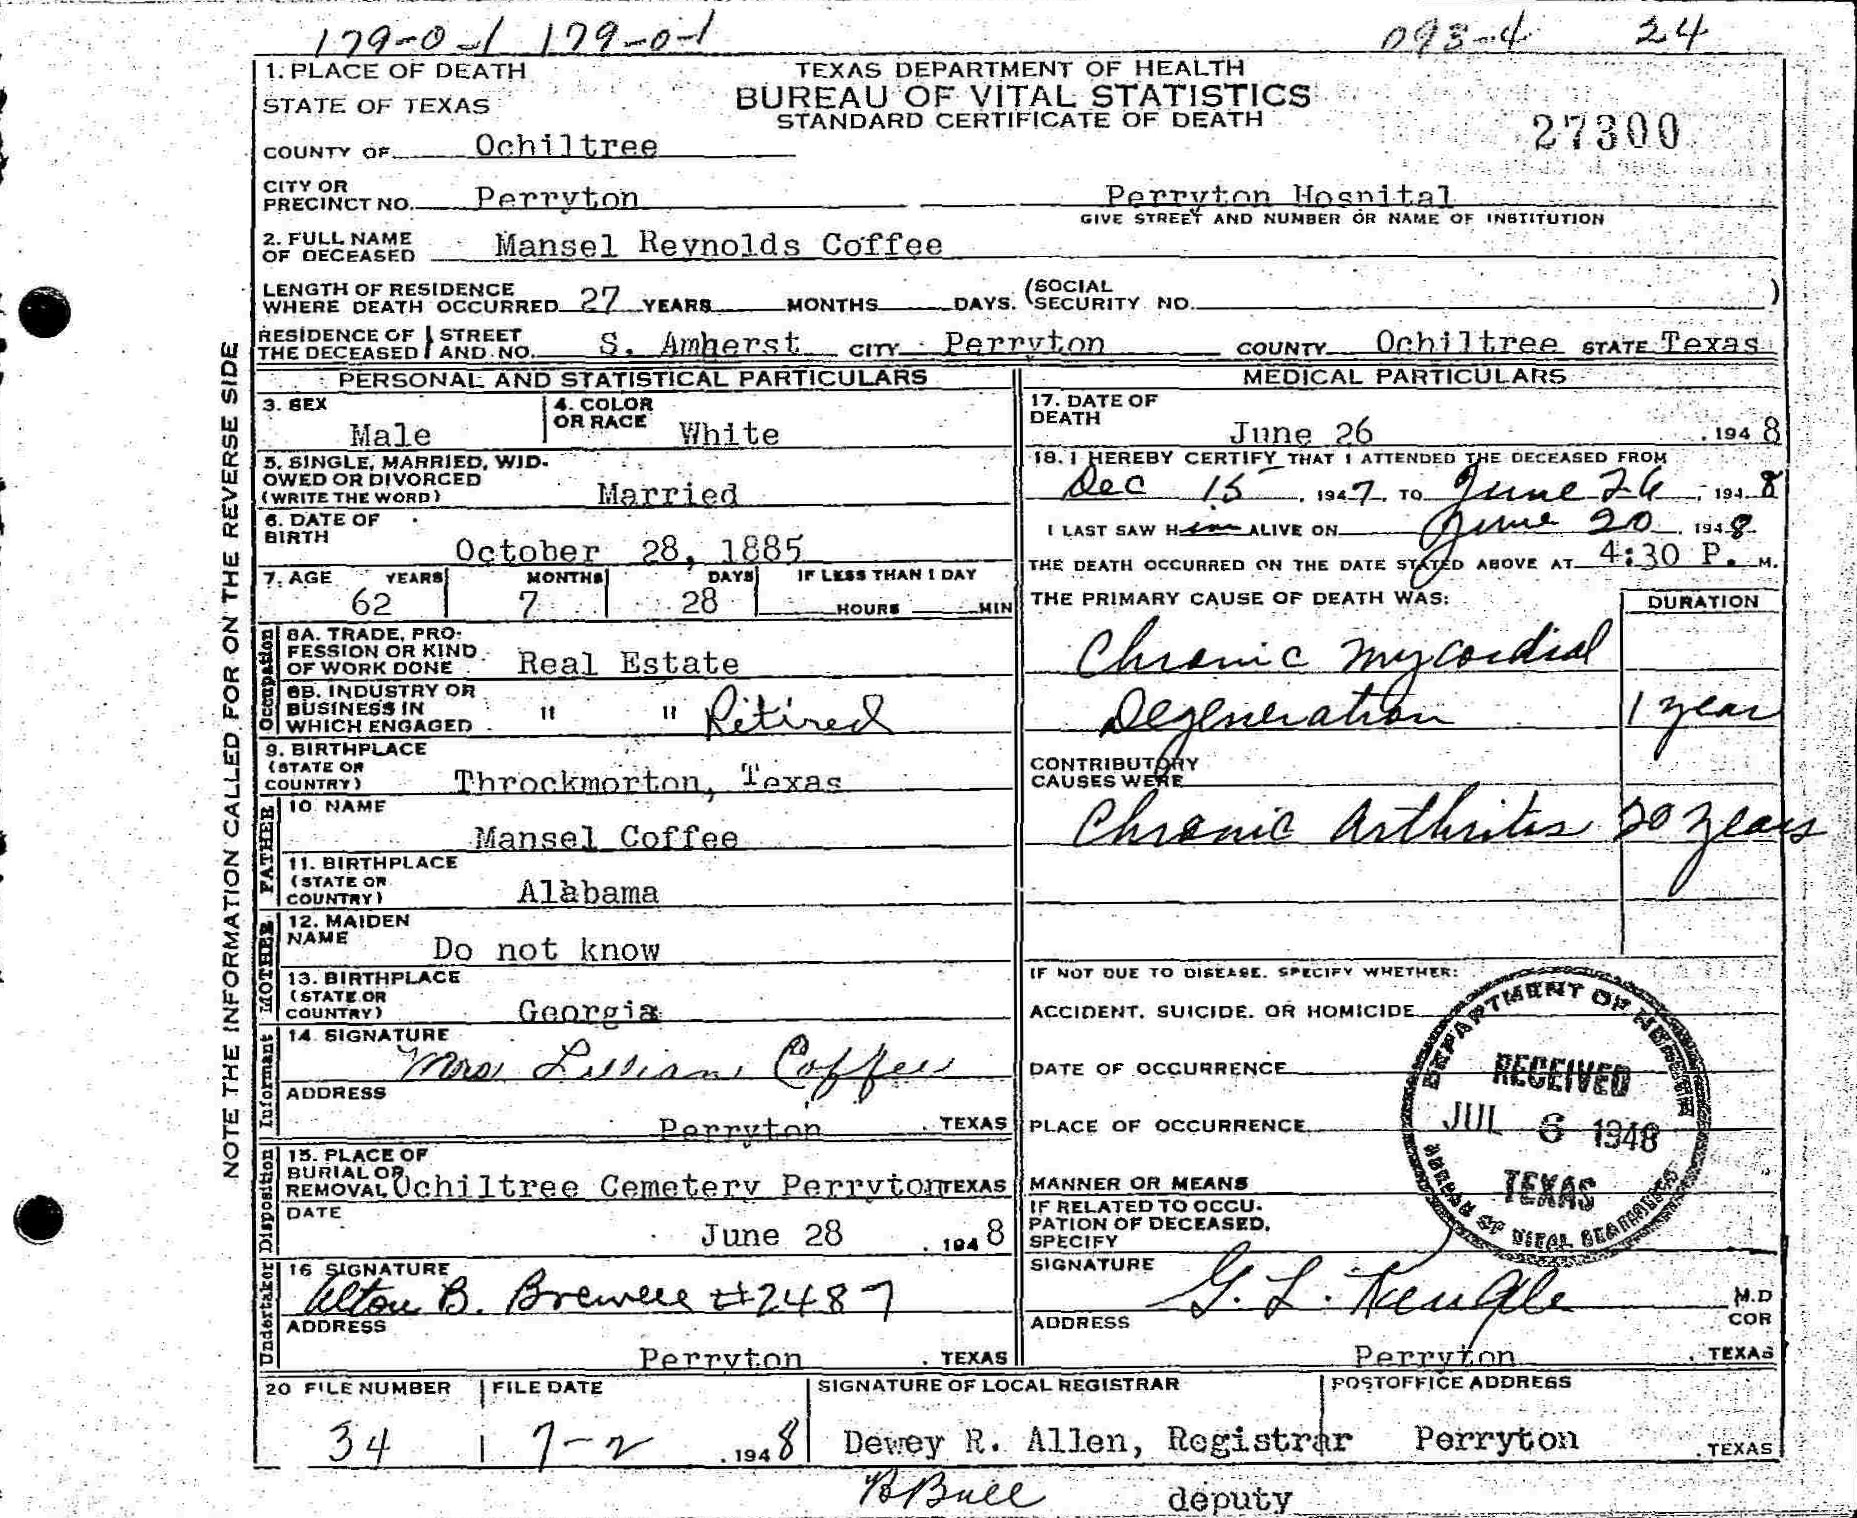 179-0-1 179-0-1 093-4 24
1. PLACE OF DEATH
STATE OF TEXAS
TEXAS DEPARTMENT OF HEALTH
BUREAU OF VITAL STATISTICS
STANDARD CERTIFICATE OF DEATH
27300
COUNTY OF Ochiltree
CITY OR
PRECINCT NO. Perryton Perryton Hospital
GIVE STREET AND NUMBER OR NAME OF INSTITUTION
2. FULL NAME
OF DECEASED Mansel Reynolds Coffee
LENGTH OF RESIDENCE
WHERE DEATH OCCURRED 27 YEARS MONTHS DAYS. (SOCIAL
SECURITY NO. )
RESIDENCE OF THE DECEASED STREET AND NO. S. Amherst CITY Perryton COUNTY Ochiltree STATE Texas
NOTE THE INFORMATION CALLED FOR ON THE REVERSE SIDE
PERSONAL AND STATISTICAL PARTICULARS
3. SEX
Male
4. COLOR
OR RACE White
5. SINGLE, MARRIED, WID-
OWED OR DIVORCED
(WRITE THE WORD) Married
6. DATE OF
BIRTH
October 28, 1885
7. AGE YEARS MONTHS DAYS IF LESS THAN 1 DAY
62 7 28 HOURS MIN
Occupation
8A. TRADE, PRO-
FESSION OR KIND
OF WORK DONE Real Estate
8B. INDUSTRY OR
BUSINESS IN
WHICH ENGAGED " " Retired
9. BIRTHPLACE
(STATE OR
COUNTRY) Throckmorton, Texas
FATHER
10 NAME
Mansel Coffee
11. BIRTHPLACE
(STATE OR
COUNTRY) Alabama
MOTHER
12. MAIDEN
NAME Do not know
13. BIRTHPLACE
(STATE OR
COUNTRY) Georgia
Informant
14. SIGNATURE
Mrs Lillian Coffee
ADDRESS
Perryton , TEXAS
Disposition
15. PLACE OF
BURIAL OR
REMOVAL Ochiltree Cemetery Perryton TEXAS
DATE
June 28 , 194 8
Undertaker
16 SIGNATURE
Alton B. #2487
ADDRESS
Perryton , TEXAS
MEDICAL PARTICULARS
17. DATE OF
DEATH
June 26 , 194 8
18. I HEREBY CERTIFY THAT I ATTENDED THE DECEASED FROM
Dec 15 , 194 7, TO June 26 , 194 8
I LAST SAW H im ALIVE ON June 20 , 194 8
THE DEATH OCCURRED ON THE DATE STATED ABOVE AT 4:30 P. M.
THE PRIMARY CAUSE OF DEATH WAS: DURATION
Chronic Mycordial
Degeneration 1 year
CONTRIBUTORY
CAUSES WERE
Chronic Arthritis 20 years
IF NOT DUE TO DISEASE, SPECIFY WHETHER:
ACCIDENT, SUICIDE, OR HOMICIDE
DATE OF OCCURRENCE
PLACE OF OCCURRENCE
MANNER OR MEANS
IF RELATED TO OCCU-
PATION OF DECEASED,
SPECIFY
DEPARTMENT OF HEALTH
RECEIVED
JUL 6 1948
TEXAS
BUREAU OF VITAL STATISTICS
SIGNATURE
G. L. M.D
COR
ADDRESS
Perryton , TEXAS
20 FILE NUMBER FILE DATE SIGNATURE OF LOCAL REGISTRAR POSTOFFICE ADDRESS
34 7-2 , 194 8 Dewey R. Allen, Registrar Perryton , TEXAS
deputy